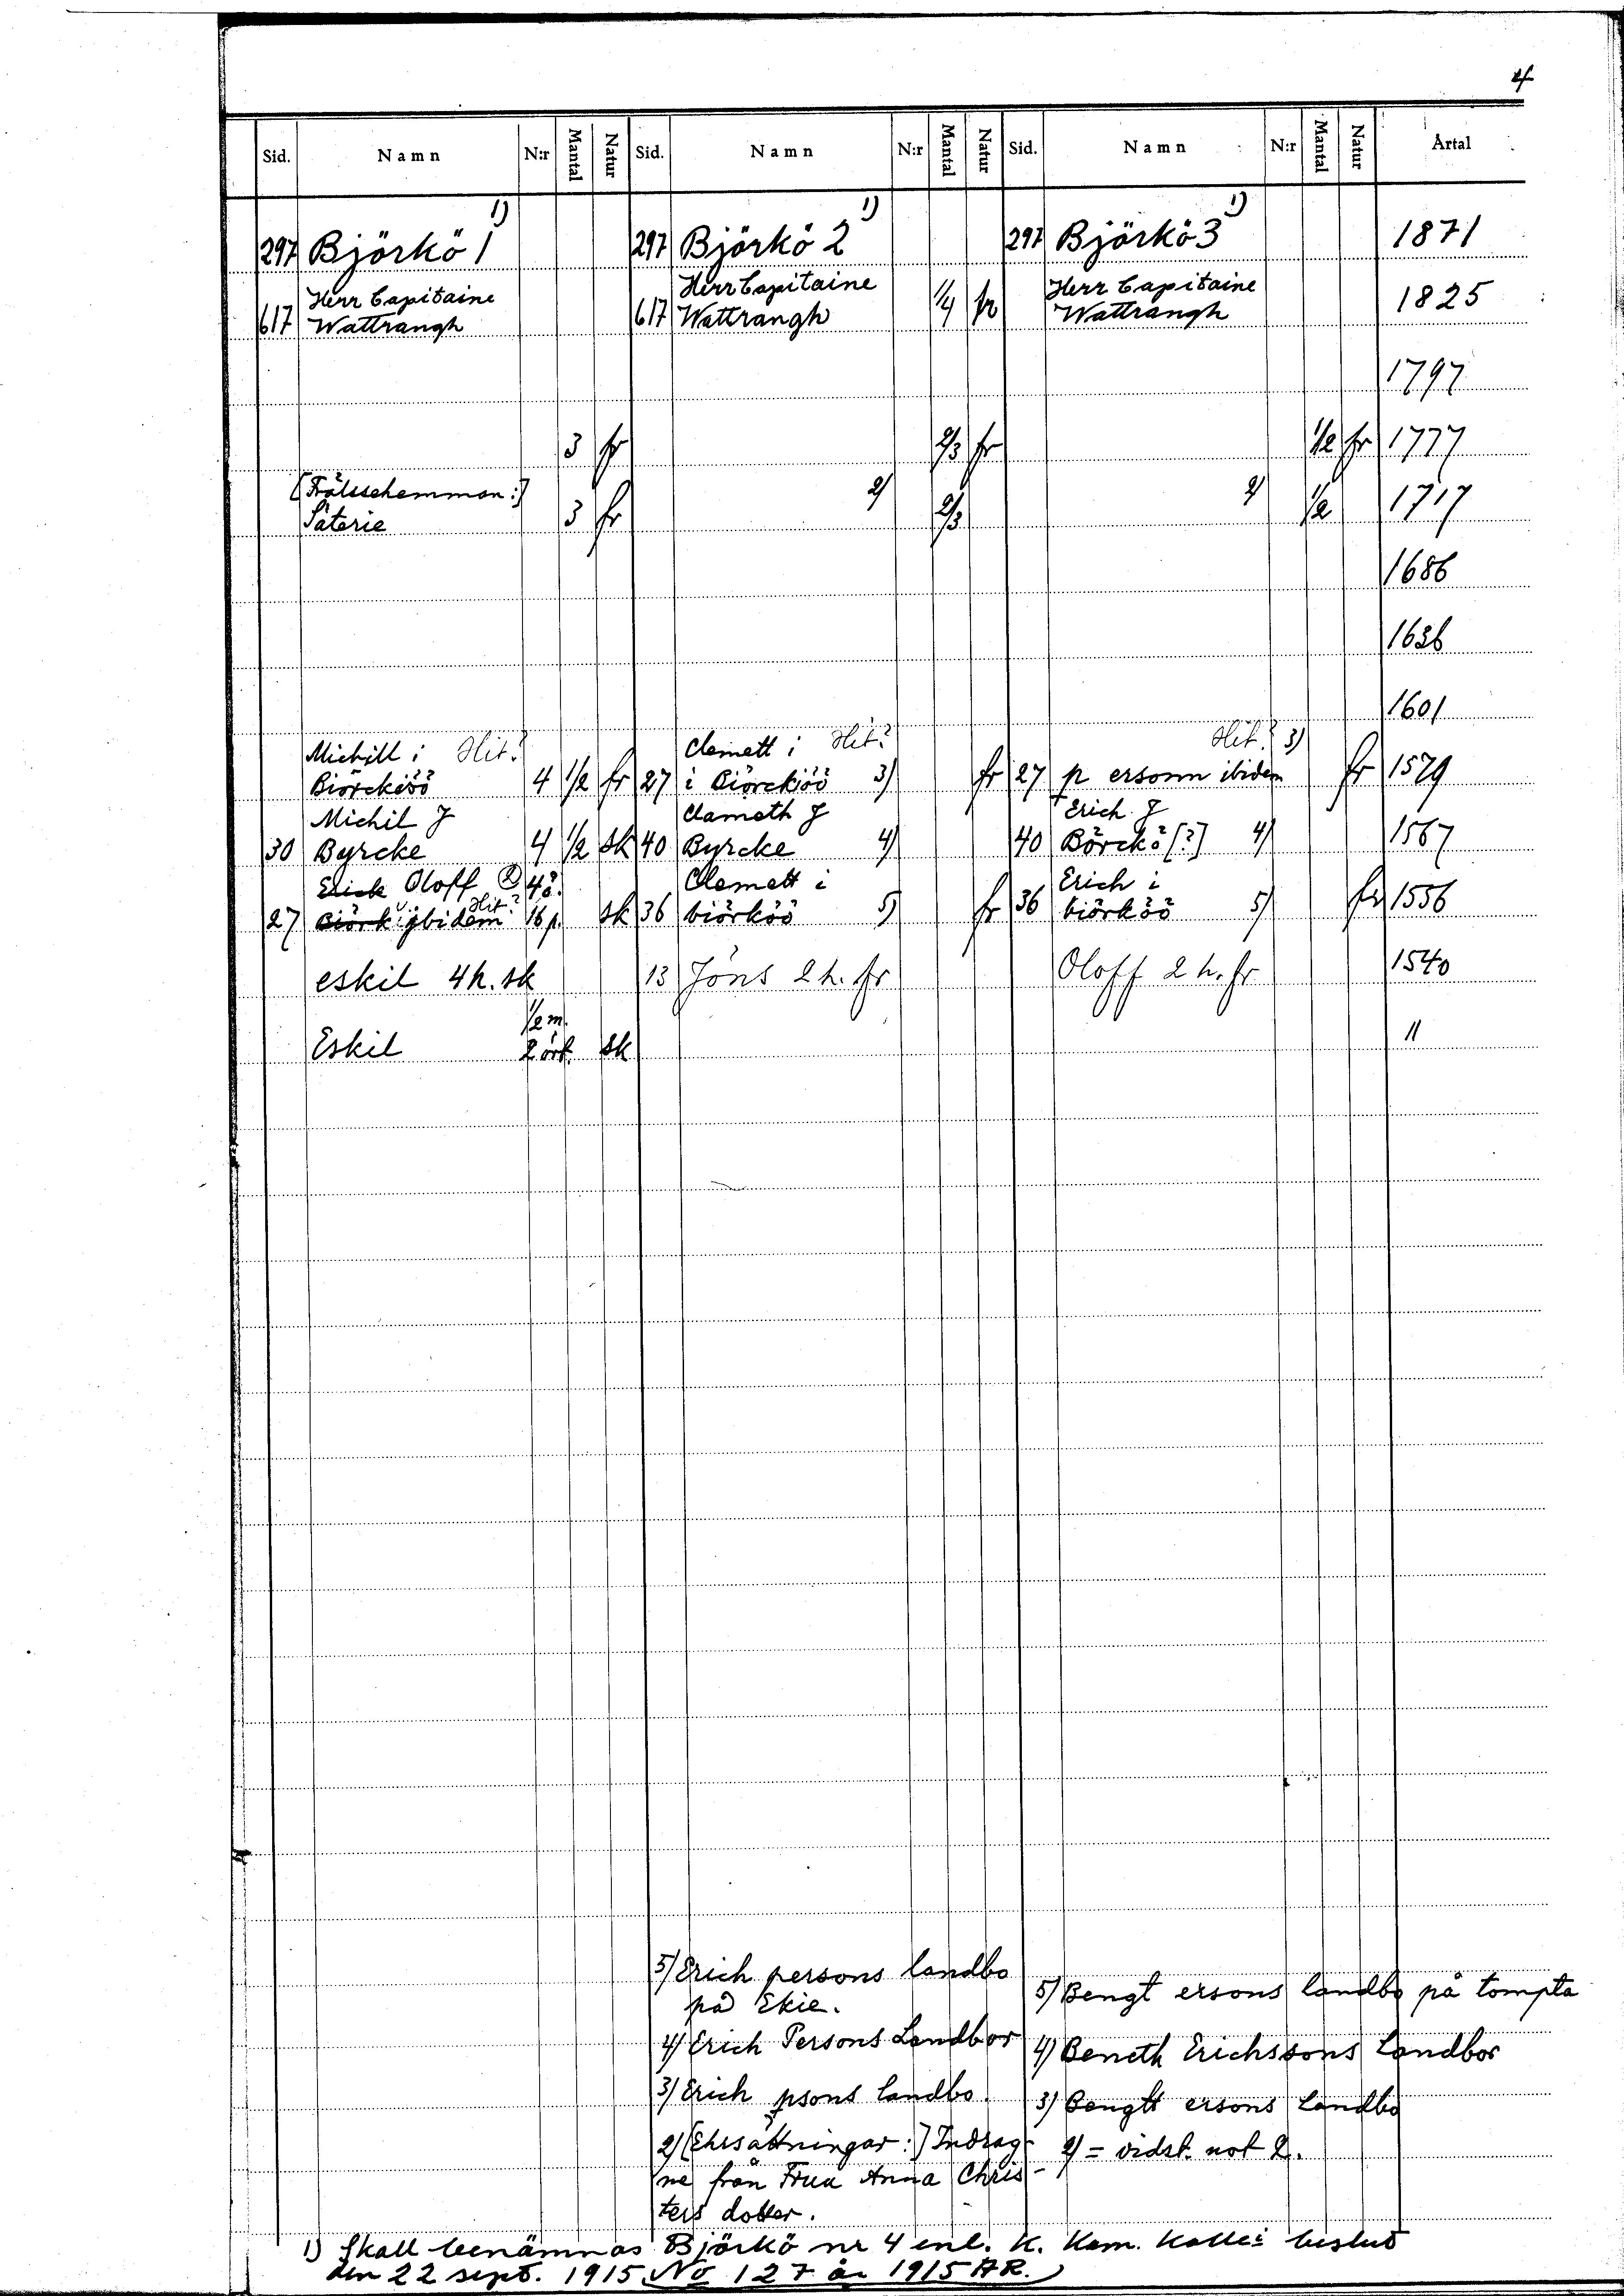 4
Sid. Namn N:r Mantal Natur Sid. Namn N:r Mantal Natur Sid. Namn N:r Mantal Natur Årtal
1) 1) 1)
297 Björkö 1 297 Björkö 2 297 Björkö 3 1871
Herr Capitaine Herr Capitaine Herr Capitaine
617 Wattrangh 617 Wattrangh 1/4 fr Wattrangh 1825
1797
3 fr 2/3 fr 1/2 fr 1777
[Frälsehemman:] 2) 2)
Säterie 3 fr 2/3 1/2 1717
1686
1636
1601
Michill i Hit? Clemett i Hit? Hit? 3)
Biörckiöö 4 1/2 fr 27 i Biörckiöö 3) fr 27 p ersonn ibidem fr 1579
Michil J Clameth J Erich J
30 Byrcke 4 1/2 sk 40 Byrcke 4) 40 Börckö [?] 4) 1567
Erick Oloff 4ö. Clemett i Erich i
27 Biörk ijbidem Hit? 16 p. sk 36 biörköö 5) fr 36 biörköö 5) fr 1556
eskil 4h. sk 13 Jöns 2 h. fr Oloff 2 h. fr 1540
1/2 m.
Eskil 2 ört. sk "
5) Erich persons landbo
på Ekie.
5) Bengt ersons landbo på tompta
4) Erich Persons Landbor
4) Beneth Erichssons Landbor
3) Erich psons landbo.
3) Bengtt ersons Landbo
2) [Ehrsättningar:] Indrag-
ne från Frua Anna Chris-
ters dotter.
2) = vidst. not 2.
1) Skall benämnas Björkö nr 4 enl. K. Kam. Kolle:s beslut
den 22 sept. 1915 No 127 år 1915 AR.